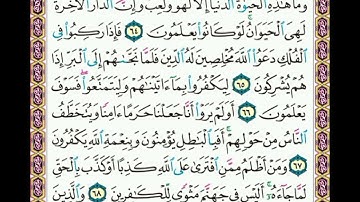 وَمَا هَٰذِهِ الْحَيَوٰةُ الدُّنْيَا إِلَّا لَهْوٌ وَلَعِبٌ وَإِنَّ الدَّارَ الْآخِرَةَ
لَهِيَ الْحَيَوَانُ لَوْ كَانُوا يَعْلَمُونَ ٦٤ فَإِذَا رَكِبُوا فِي
الْفُلْكِ دَعَوُا اللَّهَ مُخْلِصِينَ لَهُ الدِّينَ فَلَمَّا نَجَّىٰهُمْ إِلَى الْبَرِّ إِذَا
هُمْ يُشْرِكُونَ ٦٥ لِيَكْفُرُوا بِمَا ءَاتَيْنَٰهُمْ وَلِيَتَمَتَّعُوا فَسَوْفَ
يَعْلَمُونَ ٦٦ أَوَلَمْ يَرَوْا أَنَّا جَعَلْنَا حَرَمًا ءَامِنًا وَيُتَخَطَّفُ
النَّاسُ مِنْ حَوْلِهِمْ أَفَبِالْبَٰطِلِ يُؤْمِنُونَ وَبِنِعْمَةِ اللَّهِ يَكْفُرُونَ
٦٧ وَمَنْ أَظْلَمُ مِمَّنِ افْتَرَىٰ عَلَى اللَّهِ كَذِبًا أَوْ كَذَّبَ بِالْحَقِّ
لَمَّا جَاءَهُ أَلَيْسَ فِي جَهَنَّمَ مَثْوًى لِّلْكَٰفِرِينَ ٦٨ وَالَّذِينَ